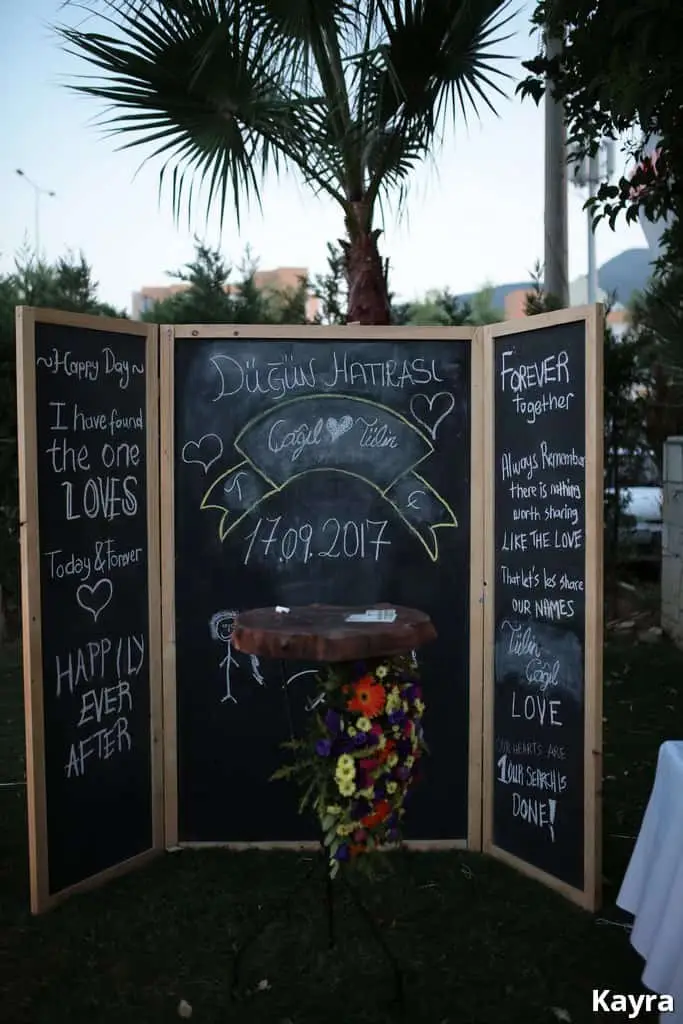 ~Happy Day~
I have found
the one
LOVES
Today & Forever
HAPPILY
EVER
AFTER
DÜĞÜN HATIRASI
Çağıl Tülin
T Ç
17.09.2017
FOREVER
together
Always Remember
there is nothing
worth sharing
LIKE THE LOVE
That let's los share
OUR NAMES
Tülin
Çağıl
LOVE
OUR HEARTS ARE
1 OUR SEARCH IS
DONE!
Kayra